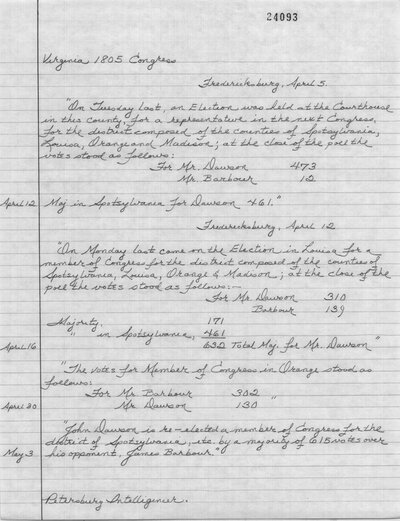 24093
Virginia 1805 Congress
Fredericksburg, April 5.
"On Tuesday last, an Election was held at the Courthouse
in this county, for a representative in the next Congress,
for the district composed of the counties of Spotsylvania,
Louisa, Orange and Madison; at the close of the poll the
votes stood as follows:
For Mr. Dawson 473
Mr. Barbour 12
April 12 Maj. in Spotsylvania for Dawson 461."
Fredericksburg, April 12
"On Monday last came on the Election in Louisa for a
member of Congress for the district composed of the counties of
Spotsylvania, Louisa, Orange & Madison; at the close of the
poll the votes stood as follows:—
For Mr. Dawson 310
Barbour 139
Majority. 171
" in Spotsylvania, 461
April 16 632 Total Maj. for Mr. Dawson"
"The votes for Member of Congress in Orange stood as
follows:
For Mr. Barbour 302
April 30 Mr. Dawson 130 "
"John Dawson is re-elected a member of Congress for the
district of Spotsylvania, etc. by a majority of 615 votes over
May 3 his opponent, James Barbour."
Petersburg Intelligencer.